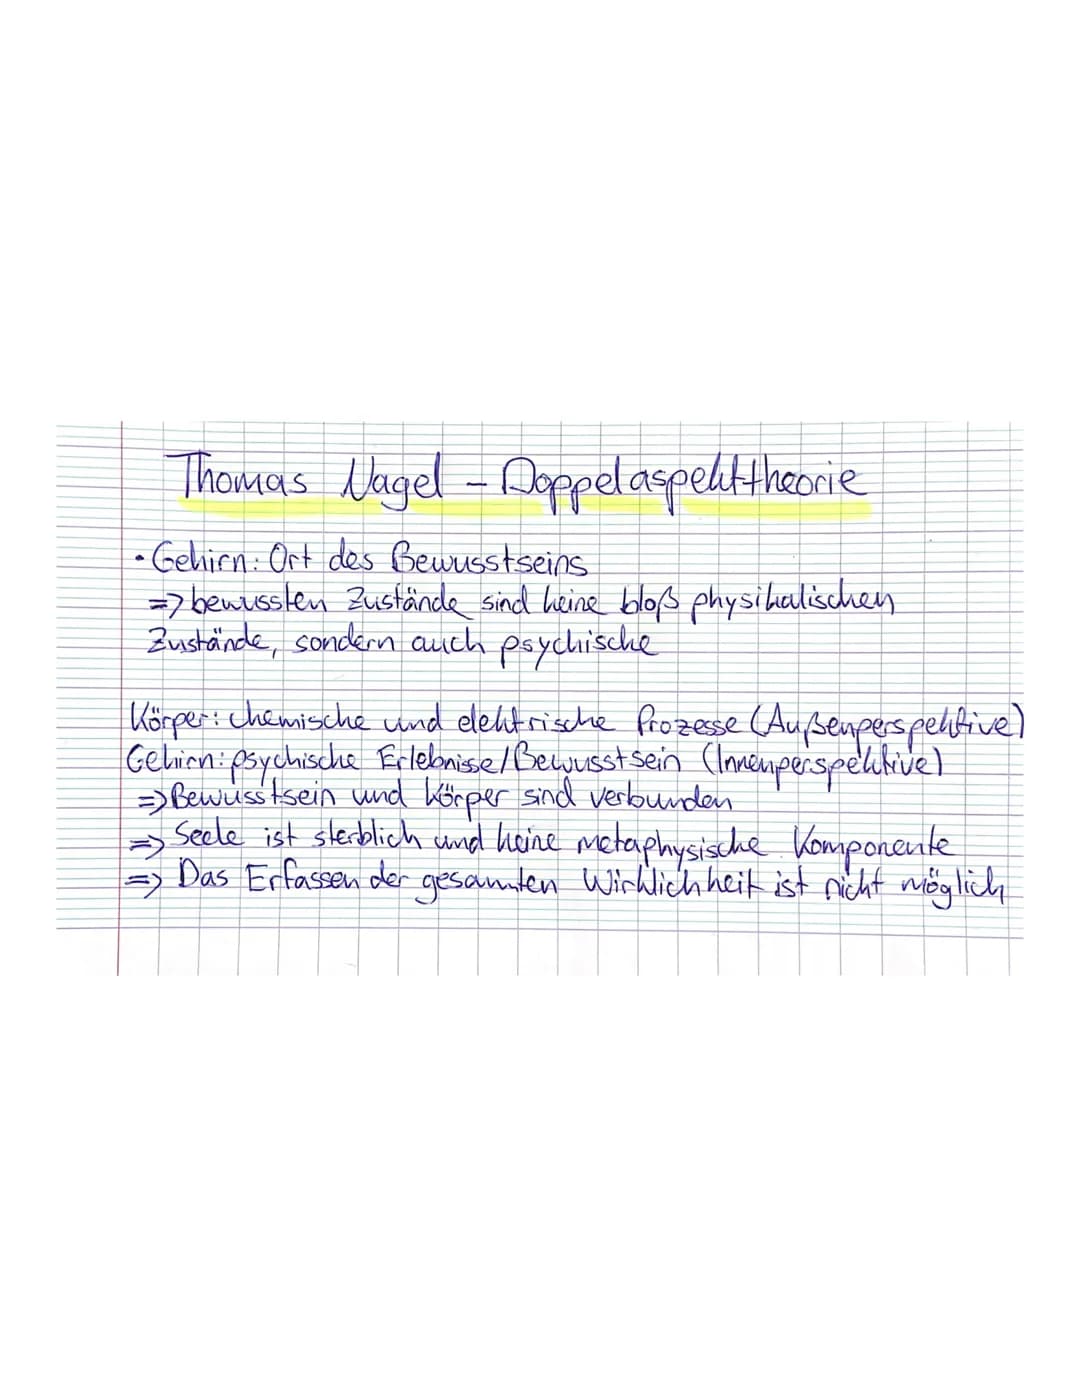 Thomas Nagel - Doppelaspekttheorie
• Gehirn: Ort des Bewusstseins
=> bewussten Zustände sind keine bloß physikalischen
Zustände, sondern auch psychische
Körper: chemische und elektrische Prozesse (Außenperspektive)
Gehirn: psychische Erlebnisse/Bewusstsein (Innenperspektive)
=> Bewusstsein und Körper sind verbunden
=> Seele ist sterblich und keine metaphysische Komponente
=> Das Erfassen der gesamten Wirklichkeit ist nicht möglich